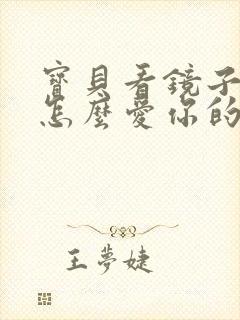 寶貝看鏡子
怎麼愛你的
王夢婕